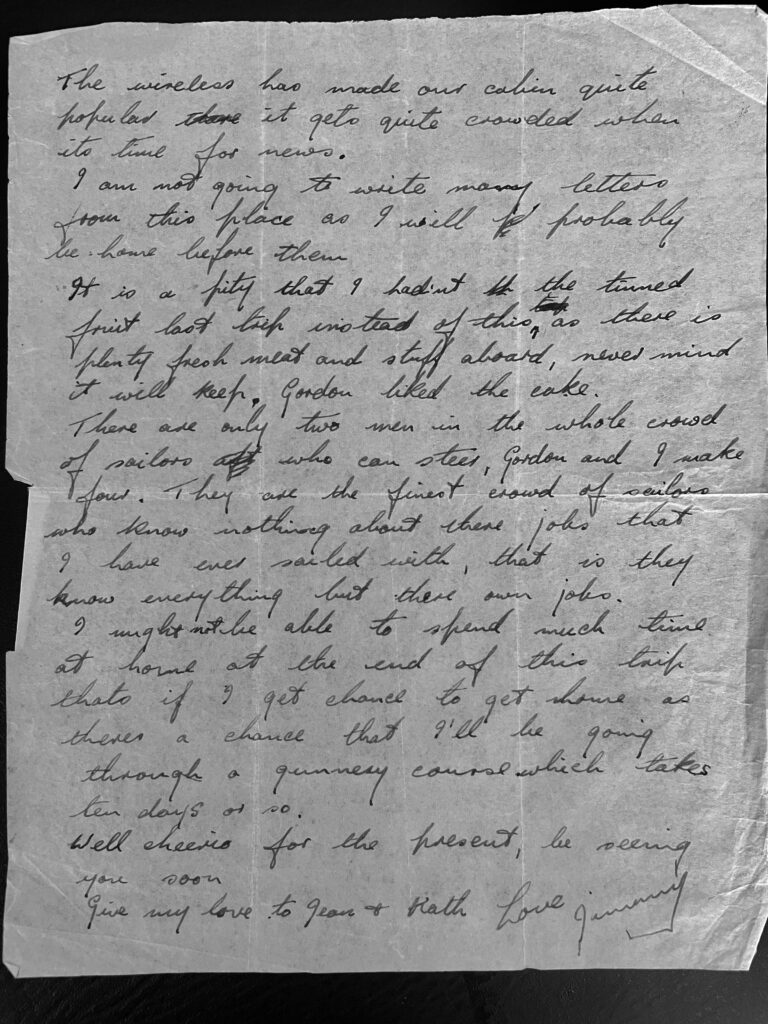 The wireless has made our cabin quite
popular there it gets quite crowded when
its time for news.
I am not going to write many letters
from this place as I will probably
be home before them
It is a pity that I hadn't the tinned
fruit last trip instead of this, as there is
plenty fresh meat and stuff aboard, never mind
it will keep. Gordon liked the cake.
There are only two men in the whole crowd
of sailors who can steer, Gordon and I make
four. They are the finest crowd of sailors
who know nothing about there jobs that
I have ever sailed with, that is they
know everything but there own jobs.
I might not be able to spend much time
at home at the end of this trip
thats if I get chance to get home as
theres a chance that I'll be going
through a gunnery course which takes
ten days or so.
Well cheerio for the present, be seeing
you soon
Give my love to Jean & Kath Love Jimmy